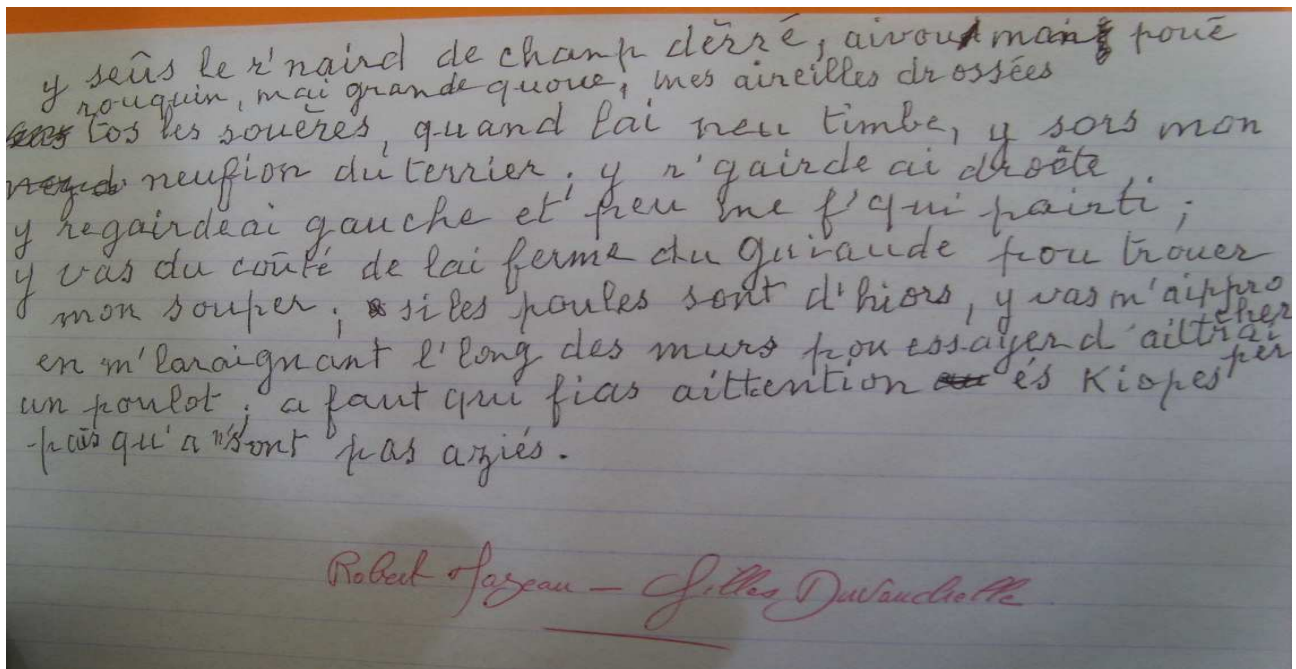 y seûs le r'naird de champ dêrré, aivou mon poué
rouquin, mai grande quoue, mes aireilles drossées
tos les souères, quand lai neu timbe, y sors mon
neufion du terrier, y r'gairde ai droête,
y regairde ai gauche et peu me f'qui pairti ;
y vas du coûté de lai ferme du guiaude pou trouer
mon souper ; si les poules sont d'hiors, y vas m'aipprocher
en m'laraignant l'long des murs pou essayer d'aittraipper
un poulot ; a faut qui fias aittention és Kiopes
pâs qu'a n'sont pas aziés.
Robert Mazeau — Gilles Duvauchelle